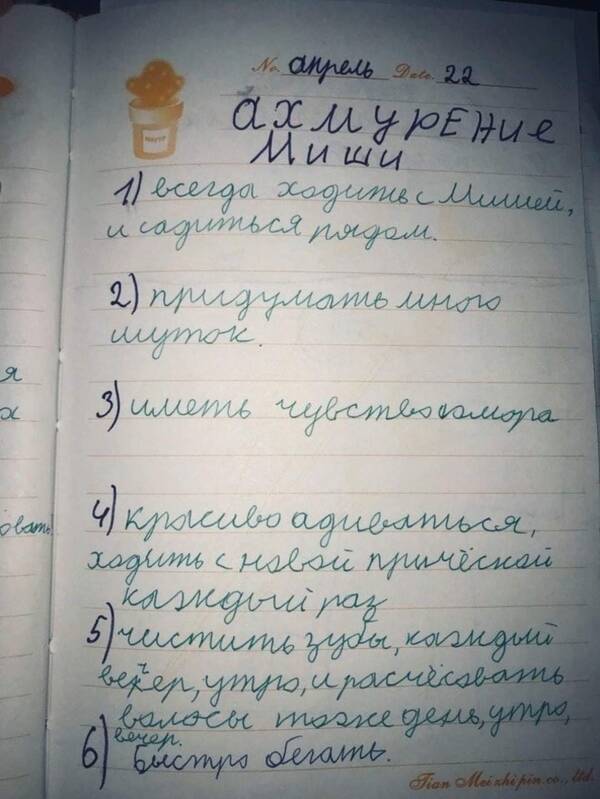 No. апрель Date. 22
АХМУРЕНИЕ
МИШИ
1) всегда ходить с Мишей,
и садиться рядом.
2) придумать много
шуток.
3) иметь чувство юмора
4) красиво адиваться,
ходить с новой причёской
каждый раз
5) чистить зубы, каждый
вечер, утро, и расчёсовать
волосы тоже день, утро,
вечер.
6) Быстро бегать.
я
х
овать
Tian Meizhipin.co., ltd.